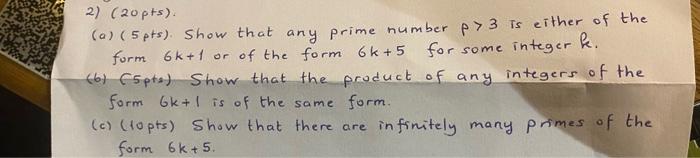 2) (20pts).
(a) (5pts). Show that any prime number p > 3 is either of the
form 6k+1 or of the form 6k+5 for some integer k.
(b) (5pts) Show that the product of any integers of the
form 6k+1 is of the same form.
(c) (10pts) Show that there are infinitely many primes of the
form 6k+5.